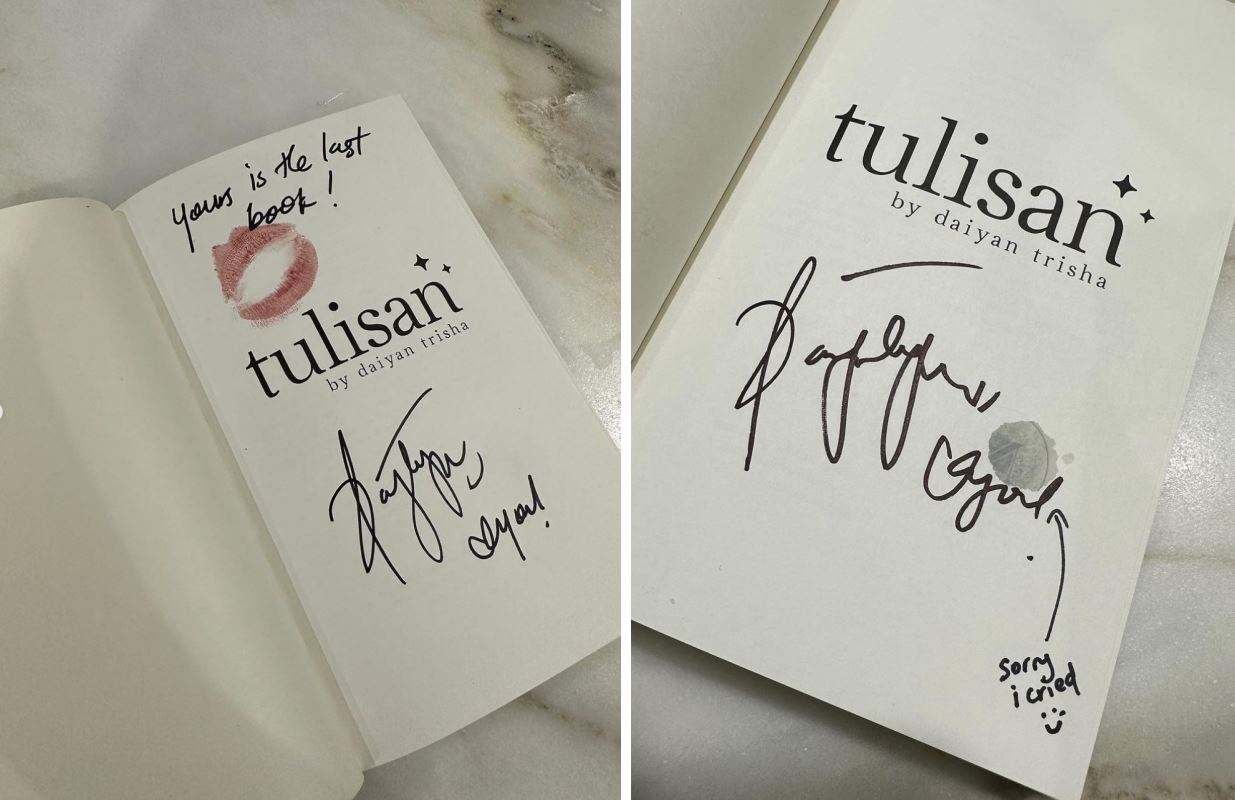 yours is the last
book!
tulisan
by daiyan trisha
tulisan
by daiyan trisha
sorry
i cried